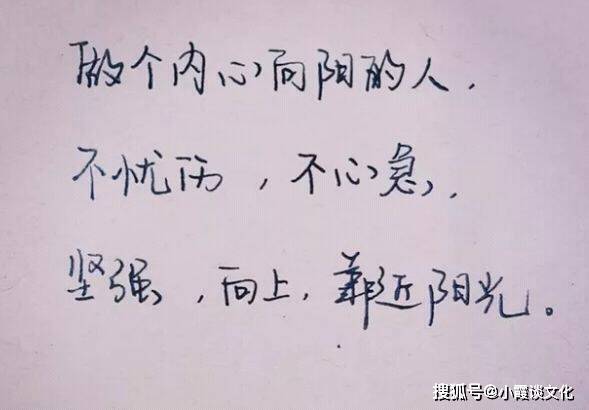 做个内心向阳的人.
不忧伤，不心急.
坚强，向上，靠近阳光。
搜狐号@小霞谈文化